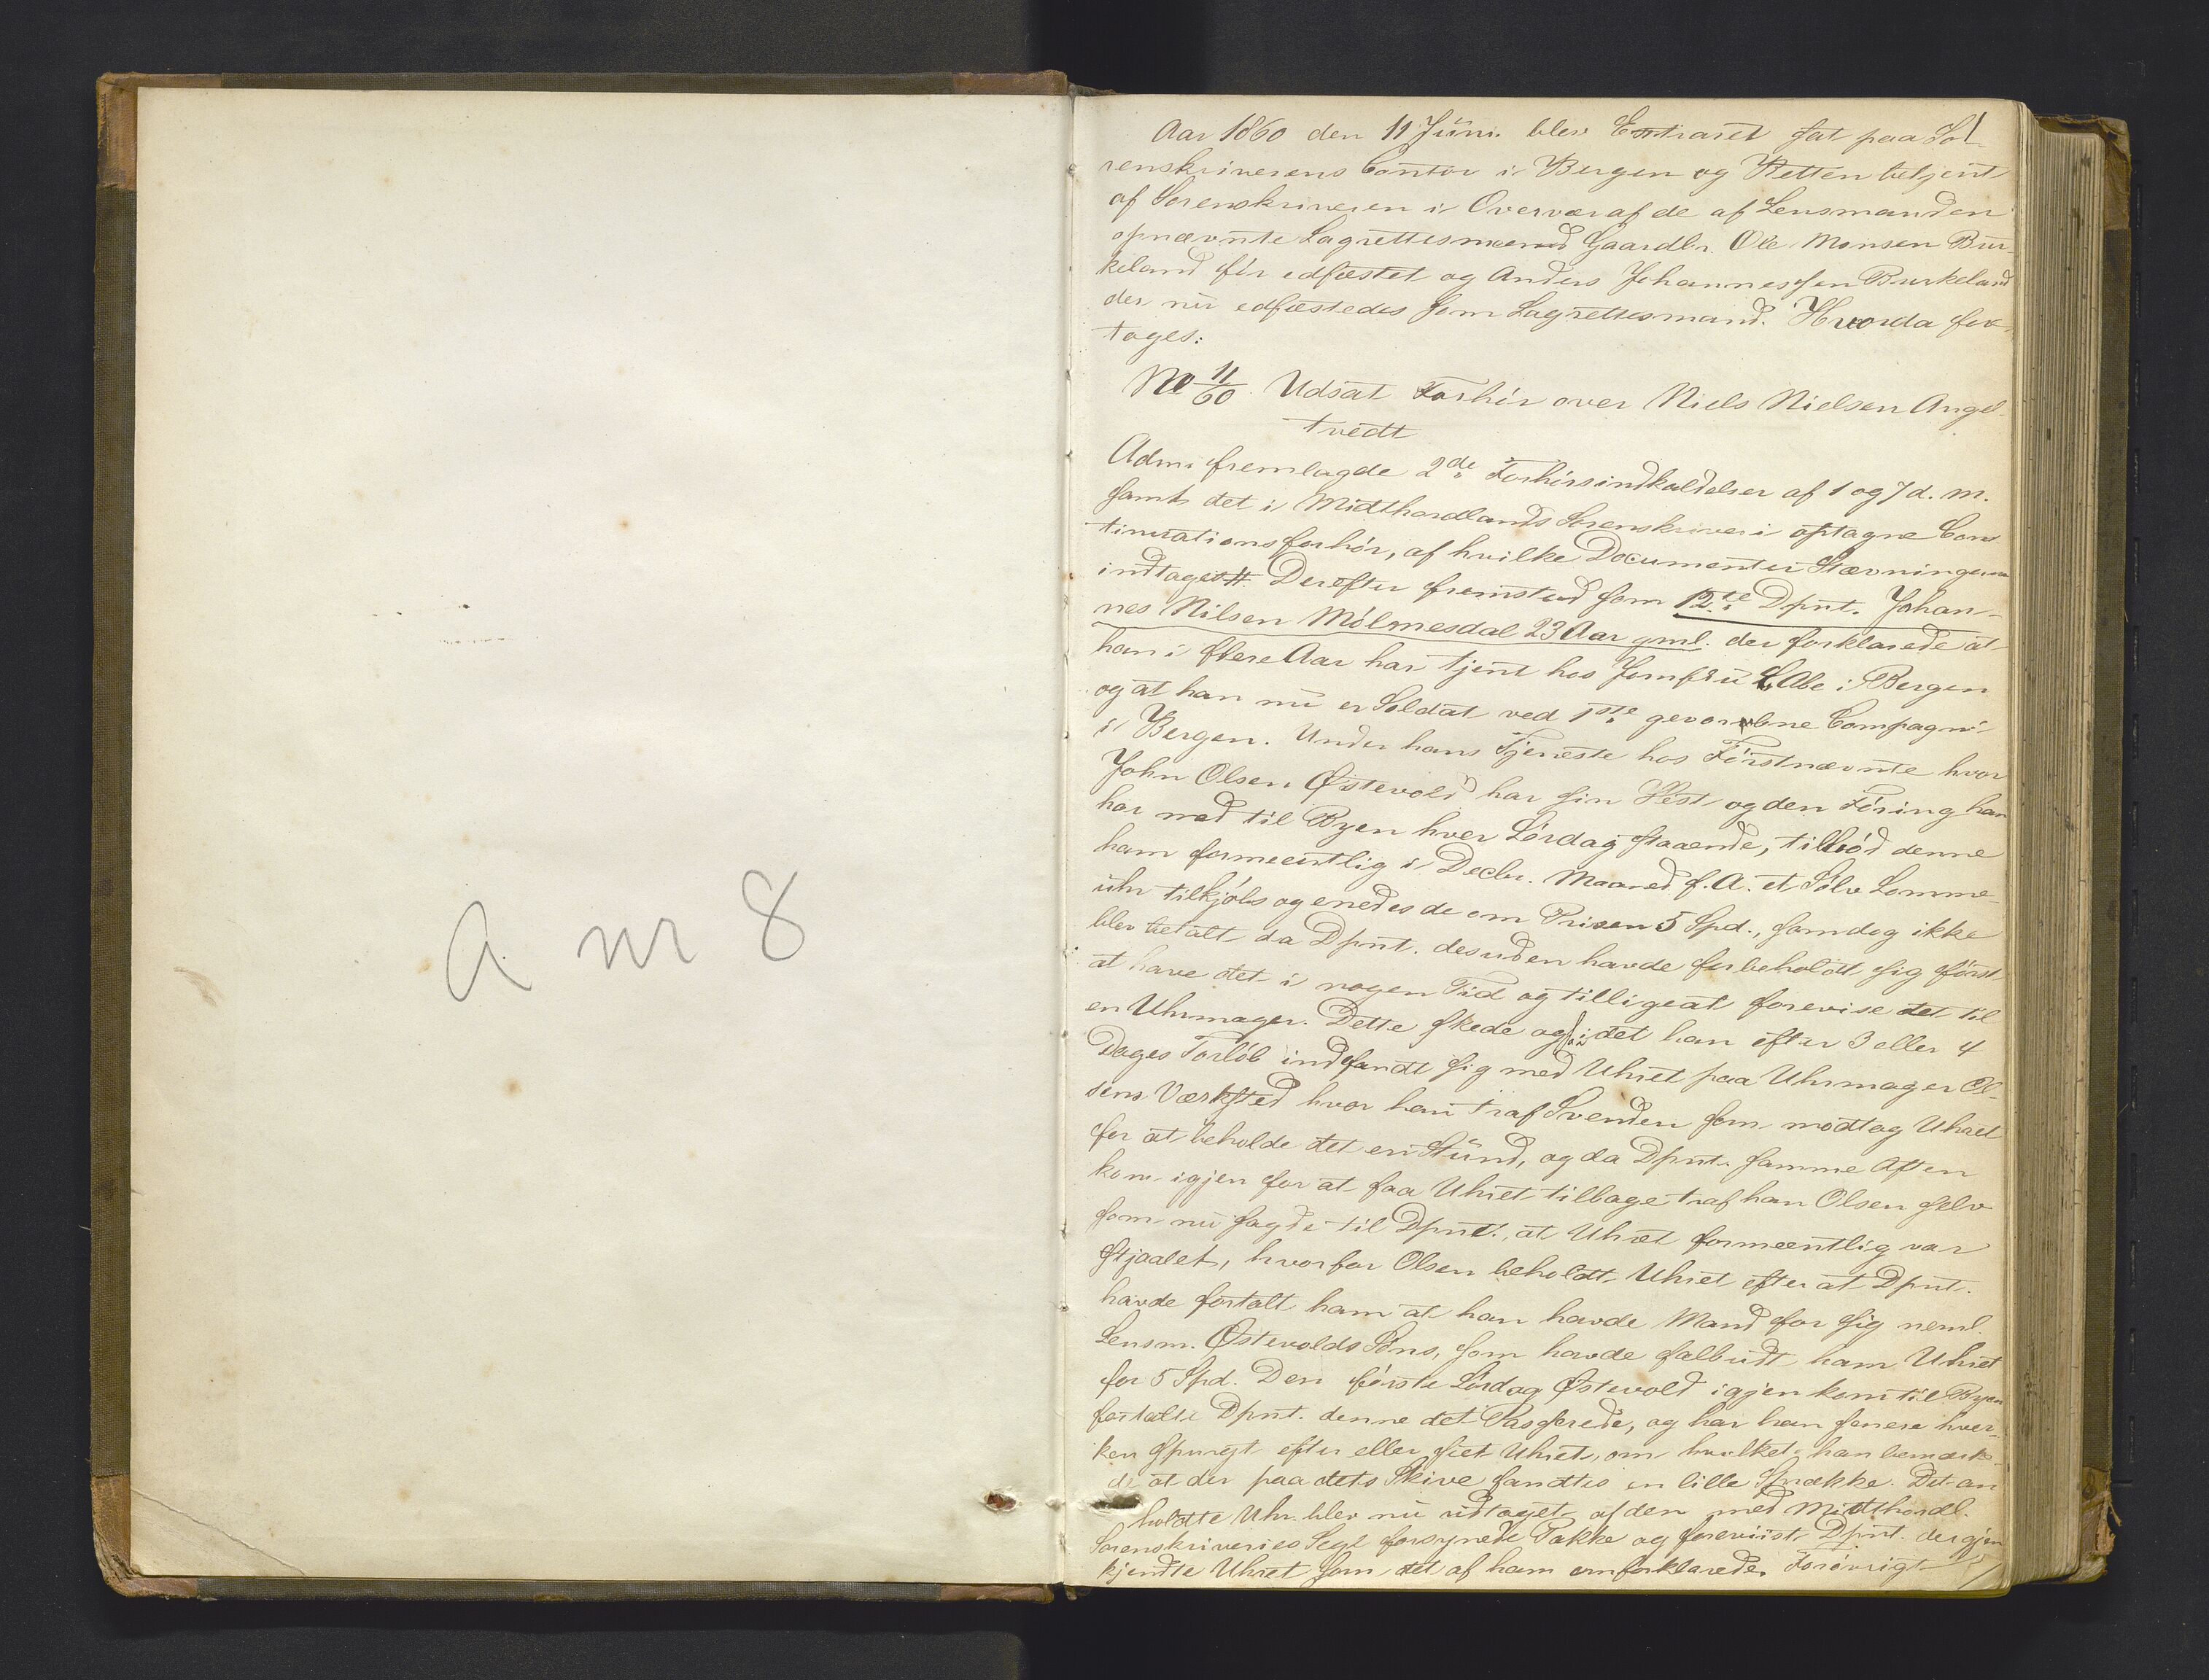 A nr 8
1
Aar 1860 den 11 Juni blev Extraret sat paa So-
renskriverens Contor i Bergen og Retten betjent
af Sorenskriveren i Overvær af de af Lensmanden
opnævnte Lagrettesmænd Gaardbr. Ole Monsen Bur-
keland før edfæstet og Anders Johannessen Burkeland
der nu edfæstedes som Lagrettesmand. Hvorda fore-
toges:
No 11/60 Udsat Forhør over Niels Nielsen Angel-
tvedt
Adm fremlagde 2de Forhørsindkaldelser af 1 og 7 d. M.
samt det i Midthordlands Sorenskriveri optagne Con
tinuationsforhør, af hvilke Documenter Stævningerne
indtages Derefter fremstod som 12te Dpnt. Johan-
nes Nilsen Mølmesdal 23 Aar gml. der forklarede at
han i flere Aar har tjent hos Jomfru L. Abe i Bergen
og at han nu er Soldat ved 1ste gevorbne Compagni
i Bergen. Under hans Tjeneste hos Førstnævnte hvor
John Olsen Østevold har sin Hest og den Føring han
har med til Byen hver Lørdag staaende, tilbød denne
ham formeentlig i Decbr. Maaned f. A. et Sølv Lomme-
uhr tilkjøbs og enedes de om Prisen 5 Spd., som dog ikke
blev betalt da Dpnt. desuden havde forbeholdt sig først
at have det i nogen Tid og tillige at forevise det til
en Uhrmager. Dette skede og idet han efter 3 eller 4
Dages Forløb indfandt sig med Uhret paa Uhrmager Ol-
sens Værksted hvor han traf Svenden som modtog Uhret
for at beholde det en Stund, og da Dpnt. samme Aften
kom igjen for at faa Uhret tilbage traf han Olsen selv
som nu sagde til Dpnt., at Uhret formeentlig var
stjaalet, hvorfor Olsen beholdt Uhret efter at Dpnt.
havde fortalt ham at han havde Mand for sig neml.
Lensm. Østevolds Søns, som havde falbudt ham Uhret
for 5 Spd. Den første Lørdag Østevold igjen kom til Byen
fortalte Dpnt. denne det Passerede, og har han senere hver-
ken spurgt efter eller seet Uhret, om hvilket han bemærke-
de at der paa dets Skive fandtes en lille Sprække. Det an
holdte Uhr blev nu udtaget af den med Midthordl.
Sorenskriveries Segl forsynede Pakke og foreviist Dpnt. der gjen
kjendte Uhret som det af ham omforklarede. Forøvrigt